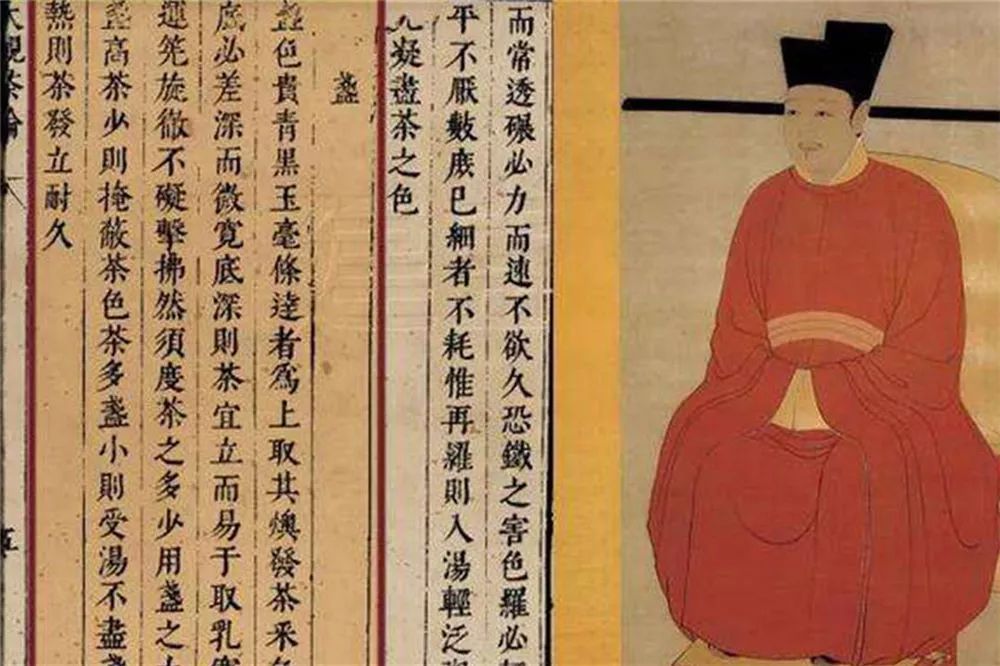 而常透碾必力而速不欲久恐鐵之害色羅必
平不厭數庻已細者不耗惟再羅則入湯輕泛
光凝盡茶之色
盞
盞色貴青黑玉毫條逹者爲上取其燠發茶采色
底必差深而微寛底深則茶宜立而易于取乳寛
運筅旋徹不礙擊拂然須度茶之多少用盞之
盞高茶少則掩蔽茶色茶多盞小則受湯不盡盞
熱則茶發立耐久
大觀茶論
五